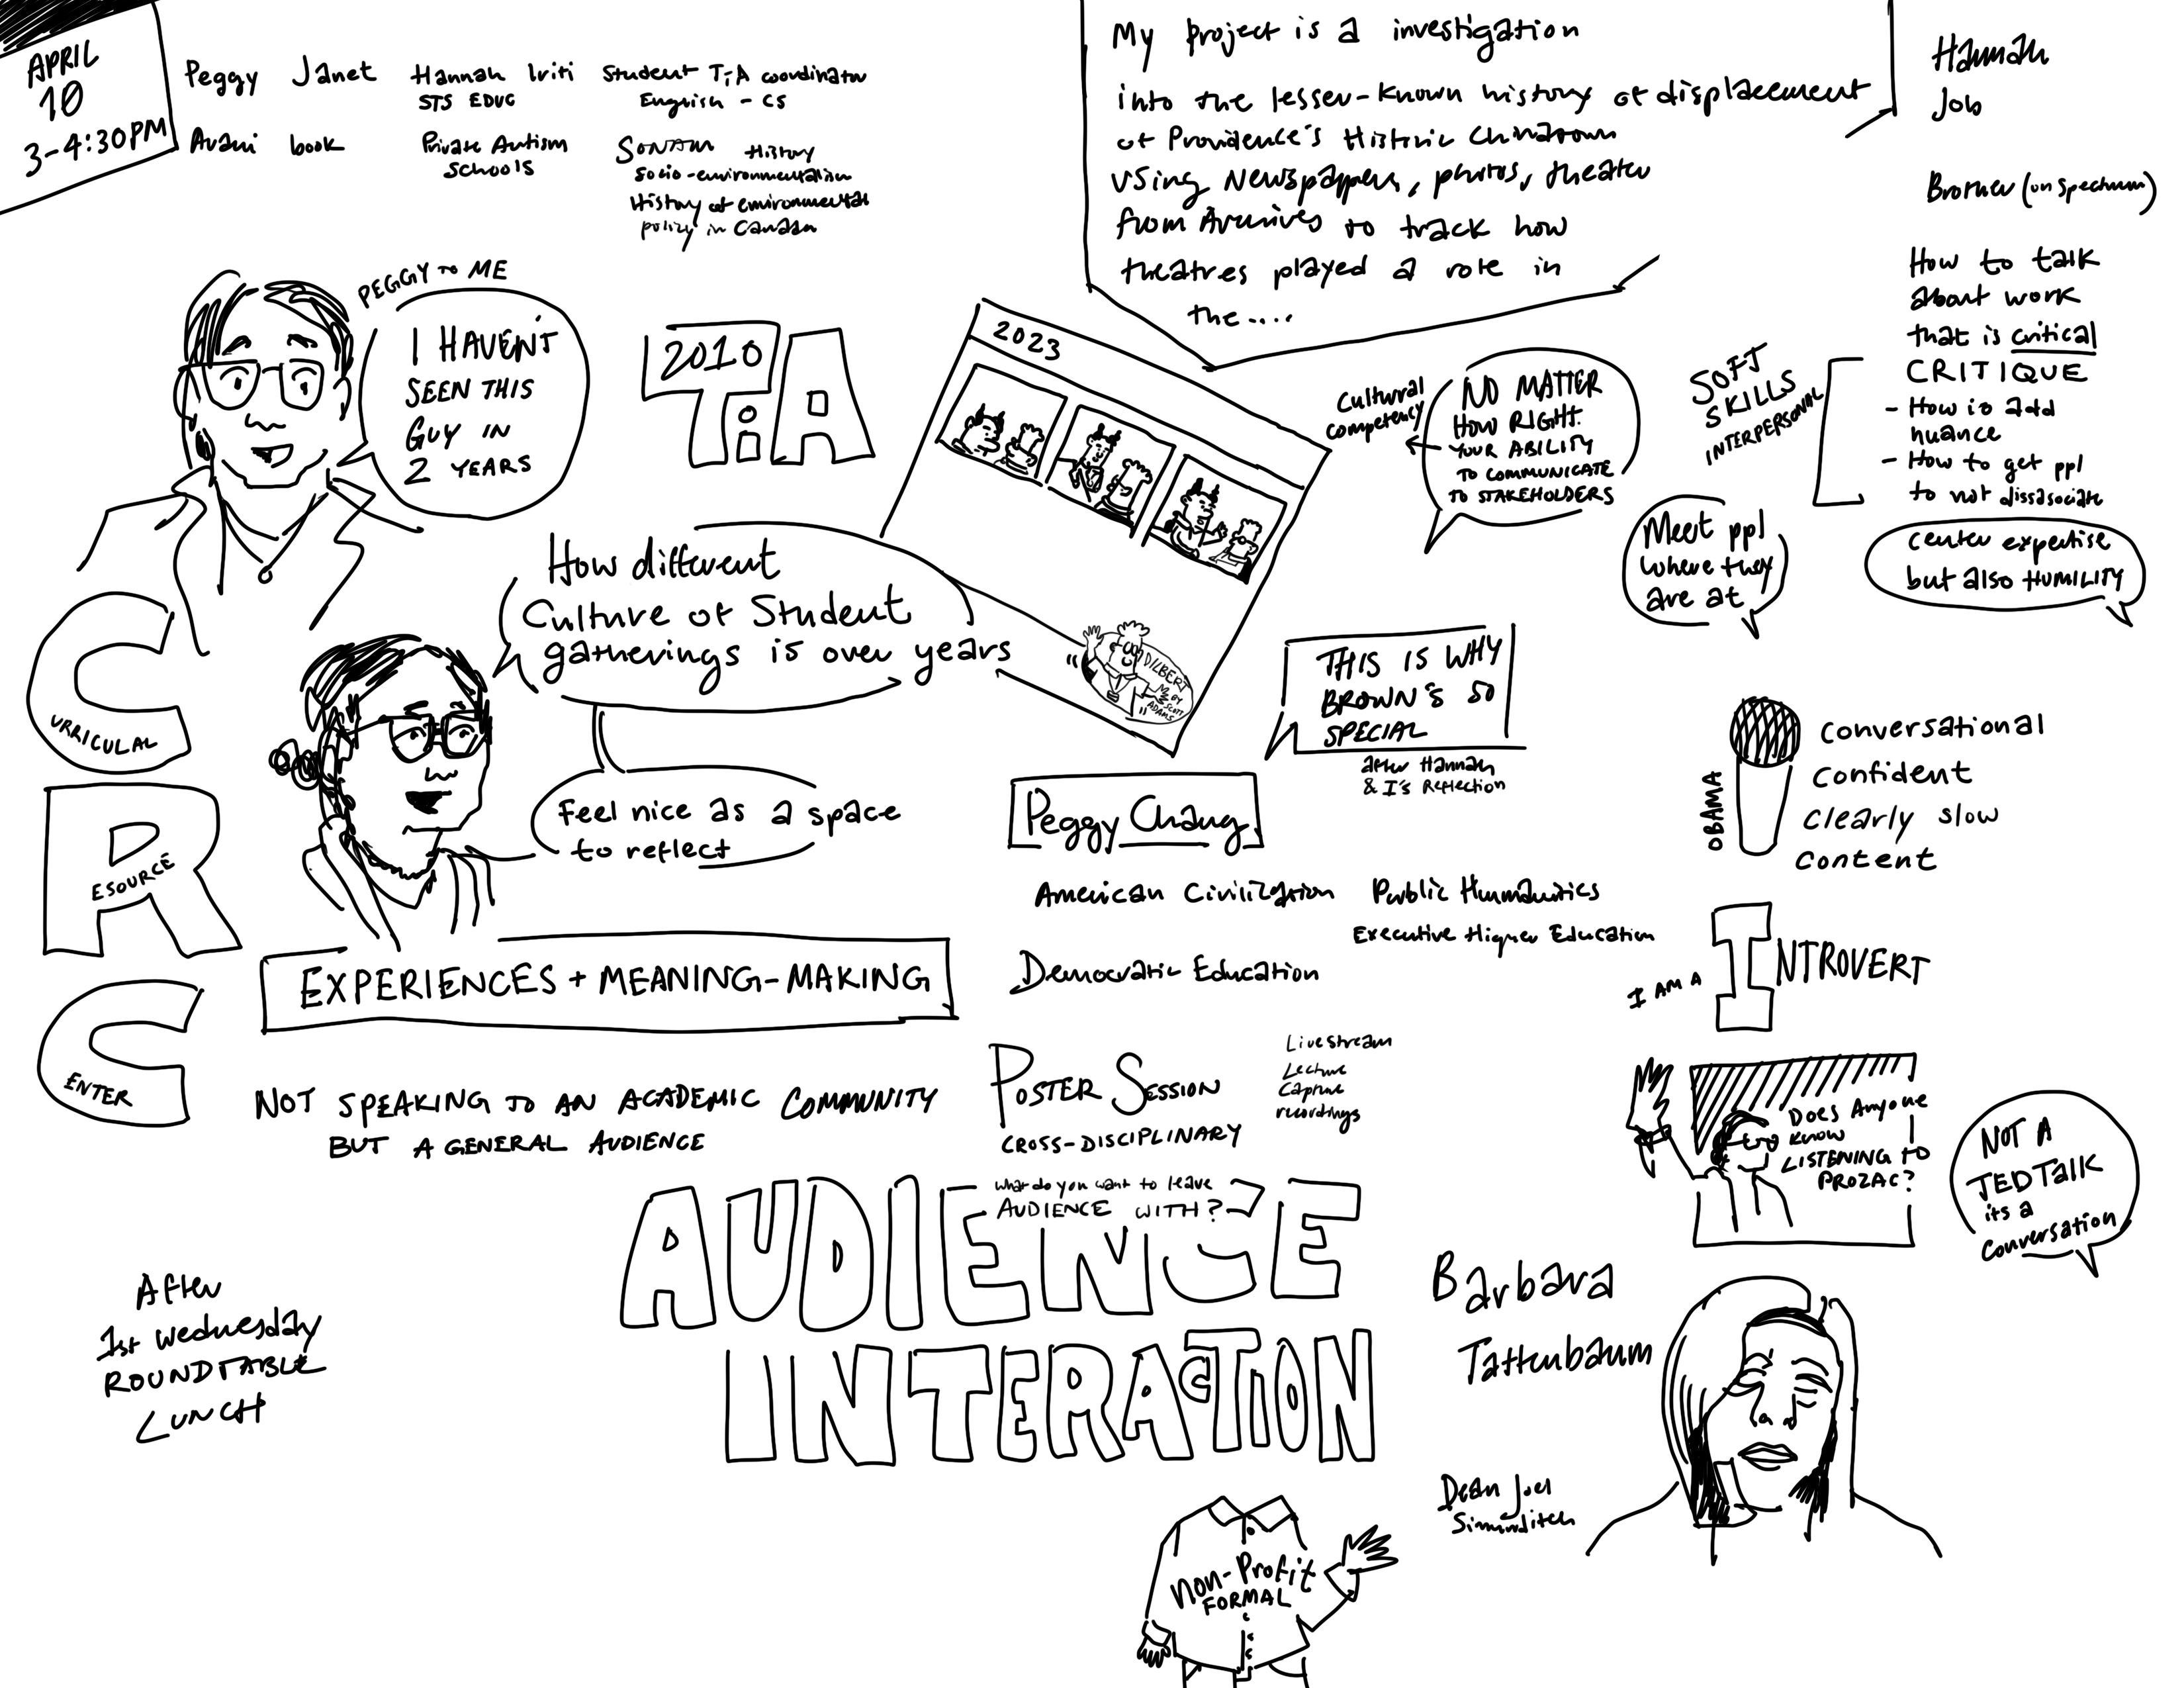 APRIL
10
3-4:30PM
Peggy Janet
Avani book
Hannah Iriti
STS EDUC
Private Autism
Schools
Student TiA coordinator
English - CS
Sonam History
Socio-environmentalism
History of environmental
policy in Canada
My project is a investigation
into the lesser-known history of displacement
of Providence's Historic Chinatown
using Newspappers, photos, theater
from Archives to track how
theatres played a role in
the....
Hannah
Job
Brother (on spectrum)
How to talk
about work
that is critical
CRITIQUE
- How to add
nuance
- How to get ppl
to not dissasociate
SOFT
SKILLS
INTERPERSONAL
center expertise
but also HUMILITY
Meet ppl
where they
are at
NO MATTER
HOW RIGHT.
YOUR ABILITY
TO COMMUNICATE
TO STAKEHOLDERS
Cultural
competency
PEGGY to ME
I HAVEN'T
SEEN THIS
GUY IN
2 YEARS
2010
TiA
2023
DILBERT
BY
SCOTT
ADAMS
How different
Culture of Student
gatherings is over years
Feel nice as a space
to reflect
THIS IS WHY
BROWN'S SO
SPECIAL
after Hannah
& I's Reflection
CURRICULAR
RESOURCE
CENTER
Peggy Chang
American Civilization Public Humanities
Executive Higher Education
Democratic Education
OBAMA
conversational
confident
clearly slow
content
I AM A INTROVERT
EXPERIENCES + MEANING-MAKING
NOT SPEAKING TO AN ACADEMIC COMMUNITY
BUT A GENERAL AUDIENCE
POSTER SESSION
CROSS-DISCIPLINARY
Livestream
Lecture
Capture
recordings
Does Anyone
know
LISTENING TO
PROZAC?
NOT A
TEDTalk
its a
conversation
what do you want to leave
AUDIENCE WITH?
AUDIENCE
INTERACTION
After
1st Wednesday
ROUNDTABLE
LUNCH
Barbara
Tattenbaum
Dean Joel
Non-Profit
FORMAL